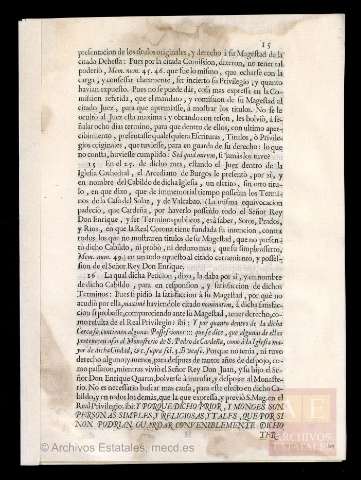 15
presentacion de los titulos originales, y derecho à su Magestad de la
citada Dehessa: Pues por la citada Comission, dixeron, no tener tal
poderio, Mem. num. 45. 46. que fue lo mismo, que echarse con la
carga, y confessar claramente, ser incierto su Privilegio, y quanto
havian expuesto. Pues no se puede dàr, cosa mas expressa en la Co-
mission referida, que el mandato, y comission de su Magestad al
citado Juez, para que apremiasse, à mostrar los titulos. No se le
ocultò al Juez esta maxima; y obrando con teson, les bolviò, à se-
ñalar ocho dias termino, para que dentro de ellos, con ultimo aper-
cibimiento, presentasse qualesquiera Escrituras, Titulos, ò Privile-
gios originales, que tuviesse, para en guarda de su derecho: lo que
no consta, huviesse cumplido: Sed quid mirum, si jamàs los tuvo?
15 En el 25. de dicho mes, estando el Juez dentro de la
Iglesia Cathedral, el Arcediano de Burgos le presentò, por sì, y
en nombre del Cabildo de dicha Iglesia, un escrito, sin otro titu-
lo, en que dixo, que de inmemorial tiempo posseian los Termi-
nos de la Casa del Solar, y de Valcabao. (La misma equivocacion
padeciò, que Cardeña, por haverlo posseido todo el Señor Rey
Don Enrique, y ser Terminos publicos, esto es, Sotos, Prados,
y Rios, en que la Real Corona tiene fundada su intencion, contra
todos los que no mostraren titulos de su Magestad, que no presen-
tò dicho Cabildo, ni probò, ni deduxo mas, que su simple asserto,
Mem. num. 49.) en un todo opuesto al citado cerramiento, y posses-
sion de el Señor Rey Don Enrique.
16 La qual dicha Peticion, dixo, la daba por sì, y en nombre
de dicho Cabildo, para en responsion, y satisfaccion de dichos
Terminos: Pues si pidiò la satisfaccion à su Magestad, por què no
acudiò por ella,
sion de su Magestad, tener derecho, co-
mo resulta de el Real Privilegio: ibi: Y por quanto dentro de la dicha
Cerca se contienen algunas Possessiones
pertenecer assi al Monasterio de S. Pedro de Cardeña, como à la Iglesia ma-
yor de dicha Ciudad, &c.
Porque no tenia, ni tuvo
derecho alguno, y menos, para despues de tantos años de despojo, co-
mo passaron, mientras viviò el Señor Rey Don Juan, y su hijo el Se-
ñor Don Enrique Quarto, bolverlo à intentar, y despojar al Monaste-
rio. No es necessario buscar mas causa, para este efecto en dicho Ca-
bildo, y en todos los demàs, que la que expressa, y previò S. Mag. en el
Real Privilegio: ibi: Y PORQUE DICHO PRIOR, Y MONGES SON
PERSONAS SIMPLES, Y RELIGIOSAS, Y TALES, QUE POR SI
NON PODRIAN GUARDAR CONVENIBLEMENTE DICHO
TER-
© Archivos Estatales, mecd.es
ARCHIVOS
ESTATALES